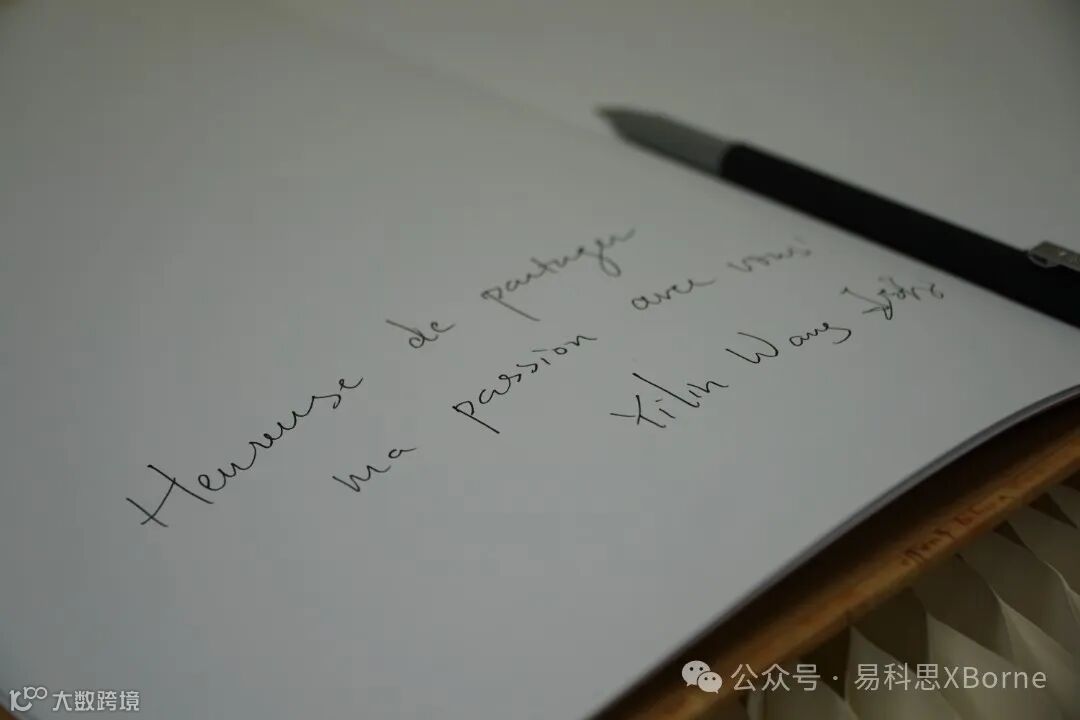 Heureuse de partager
ma passion avec vous
Yilin Wang
公众号·易科思XBorne
大数跨境